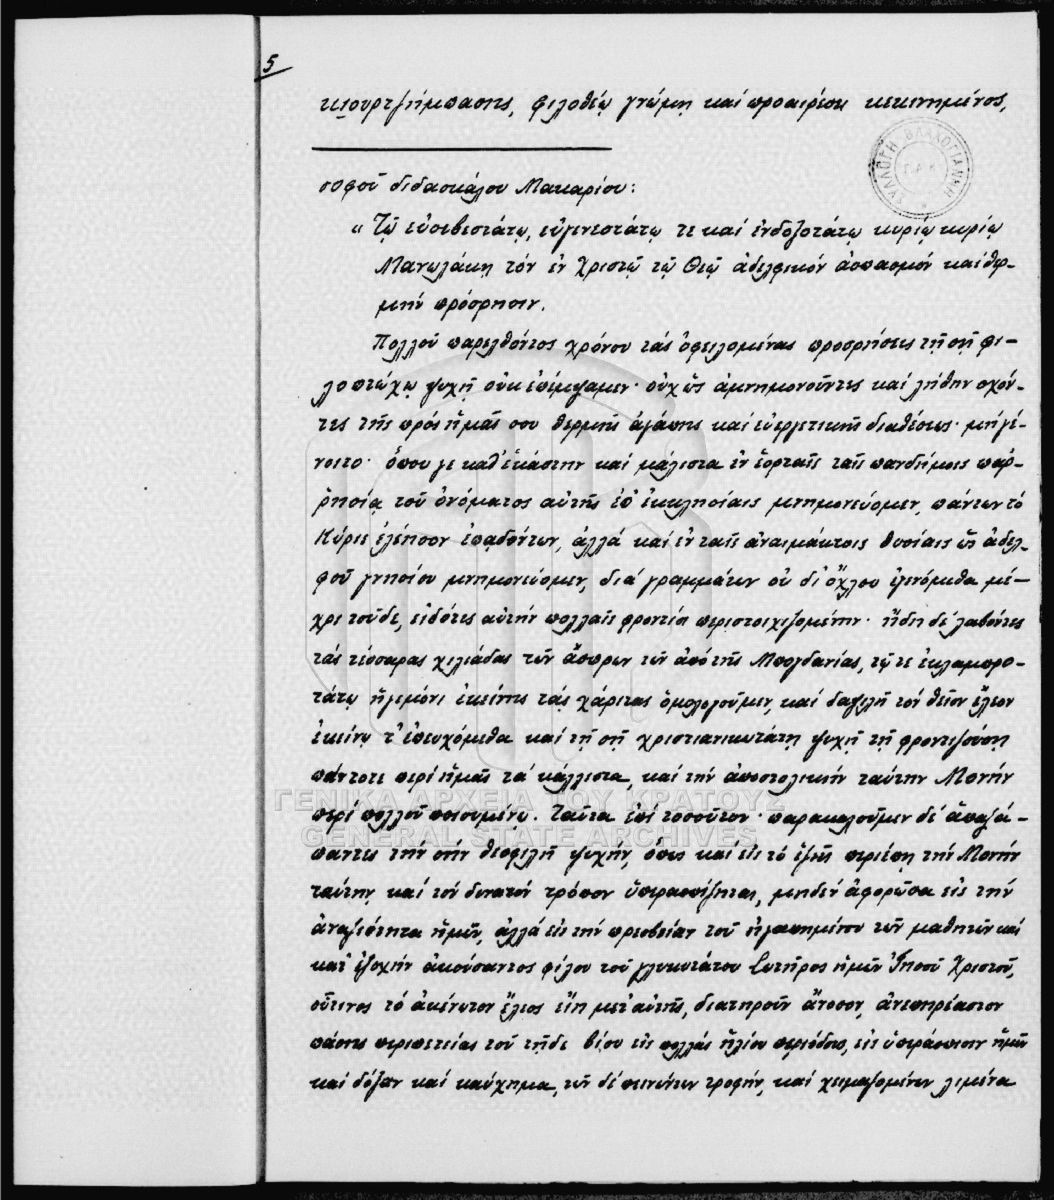 5
κιουρτζήμπασης, φιλοθέῳ γνώμῃ καί προαιρέσει κεκινημένος,
σοφοῦ διδασκάλου Μακαρίου:
" Τῷ εὐσεβεστάτῳ, εὐγενεστάτῳ τε καί ἐνδοξοτάτῳ κυρίῳ κυρίῳ
Μανωλάκῃ τόν ἐν Χριστῷ τῷ Θεῷ ἀδελφικόν ἀσπασμόν καί θερ-
μήν πρόσρησιν.
Πολλοῦ παρελθόντος χρόνου τάς ὀφειλομένας προσρήσεις τῇ σῇ φι-
λοπτώχῳ ψυχῇ οὐκ ἐπέμψαμεν· οὐχ ὥς ἀμνημονοῦντες καί λήθην σχόν-
τες τῆς πρός ἡμᾶς σου θερμῆς ἀγάπης καί εὐεργετικῆς διαθέσεως· μή γέ-
νοιτο· ὅπου γε καθ' ἑκάστην καί μάλιστα ἐν ἑορταῖς ταῖς πανδήμοις παρ-
ῥησίᾳ τοῦ ὀνόματος αὐτῆς ἐπ' ἐκκλησίαις μνημονεύομεν, πάντων τό
Κύριε ἐλέησον ἐπᾳδόντων, ἀλλά καί ἐν ταῖς ἀναιμάκτοις θυσίαις ὡς ἀδελ-
φοῦ γνησίου μνημονεύομεν, διά γραμμάτων οὐ δι' ὄχλου ἐγενόμεθα μέ-
χρι τοῦδε, εἰδότες αὐτήν πολλαῖς φροντίσι περιστοιχιζομένην· ἤδη δέ λαβόντες
τάς τέσσαρας χιλιάδας τῶν ἄσπρων τῶν ἀπό τῆς Μπογδανίας, τῷ τε ἐκλαμπρο-
τάτῳ ἡγεμόνι ἐκείνης τάς χάριτας ὁμολογοῦμεν, καί δαψιλῆ τόν θεῖον ἔλεον
ἐκείνῳ τ' ἐπευχόμεθα καί τῇ σῇ χριστιανικωτάτῃ ψυχῇ τῇ φροντιζούσῃ
πάντοτε περί ἡμᾶς τά κάλλιστα, καί τήν ἀποστολικήν ταύτην Μονήν
περί πολλοῦ ποιουμένῃ. Ταῦτα ἐπί τοσοῦτον· παρακαλοῦμεν δέ ἀπαξά-
παντες τήν σήν θεοφιλῆ ψυχήν, ὅπως καί εἰς τό ἑξῆς περιέπῃ τήν Μονήν
ταύτην καί τόν δυνατόν τρόπον ὑπερασπίζηται, μηδέν ἀφορῶσα εἰς τήν
ἀναξιότητα ἡμῶν, ἀλλά εἰς τήν πρεσβείαν τοῦ ἠγαπημένου τῶν μαθητῶν καί
κατ' ἐξοχήν ἀκούσαντος φίλου τοῦ γλυκυτάτου Σωτῆρος ἡμῶν Ἰησοῦ Χριστοῦ,
οὗτινος τό ἀκένωτον ἔλεος εἴη μετ' αὐτῆς, διατηροῦν ἄνοσον, ἀνεπηρέαστον
πάσης περιπετείας τοῦ τῇδε βίου εἰς πολλάς ἡλίου περιόδους, εἰς ὑπεράσπισιν ἡμῶν
καί δόξαν καί καύχημα, τῶν δέ πεινώντων τροφήν, καί χειμαζομένων λιμένα
ΣΥΛΛΟΓΗ ΒΛΑΧΟΓΙΑΝΝΗ
ΓΕΝΙΚΑ ΑΡΧΕΙΑ ΤΟΥ ΚΡΑΤΟΥΣ
GENERAL STATE ARCHIVES